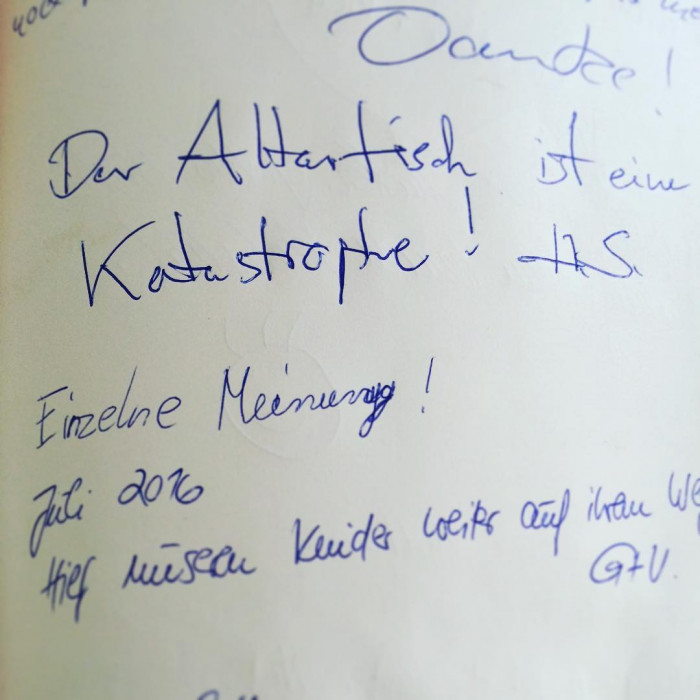 Danke!
Der Altartisch ist eine
Katastrophe! H.S.
Einzelne Meinung!
Juli 2016
Hilf unseren Kinder weiter auf ihren We
G+V.